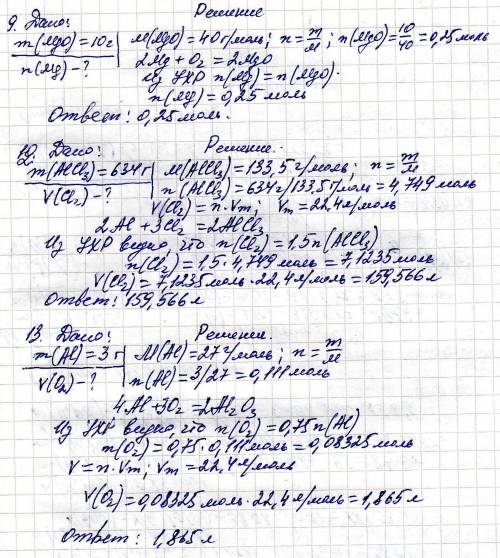 Решение
9. Дано:
m(MgO)=10г | M(MgO)=40г/моль; n=m/M; n(MgO)=10/40=0,25моль
n(Mg)-? | 2Mg+O₂=2MgO
Из УХР n(Mg)=n(MgO).
n(Mg)=0,25 моль
Ответ: 0,25моль.
Решение.
10. Дано:
m(AlCl₃)=634г | M(AlCl₃)=133,5г/моль; n=m/M
V(Cl₂)-? | n(AlCl₃)=634г/133,5г/моль=4,749моль
V(Cl₂)=n·Vm; Vm=22,4л/моль
2Al+3Cl₂=2AlCl₃
Из УХР видно, что n(Cl₂)=1,5n(AlCl₃)
n(Cl₂)=1,5·4,749моль=7,1235моль
V(Cl₂)=7,1235моль·22,4л/моль=159,566л
Ответ: 159,566л
13. Дано: Решение.
m(Al)=3г | M(Al)=27г/моль; n=m/M
V(O₂)-? | n(Al)=3/27=0,111моль
4Al+3O₂=2Al₂O₃
Из УХР видно, что n(O₂)=0,75n(Al)
n(O₂)=0,75·0,111моль=0,08325моль
V=n·Vm; Vm=22,4л/моль
V(O₂)=0,08325моль·22,4л/моль=1,865л
Ответ: 1,865л